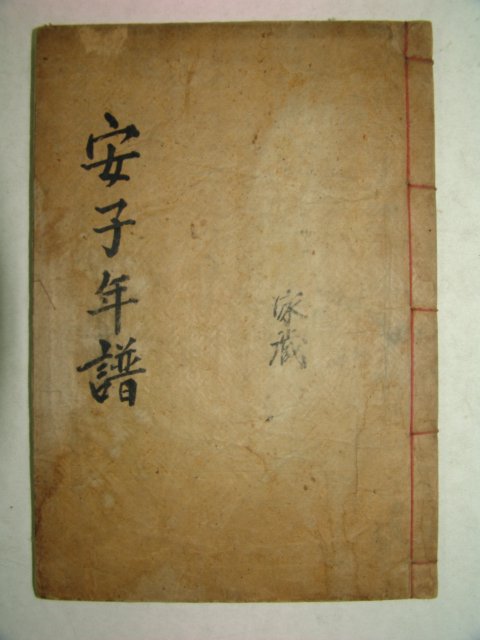 安子年譜
家蔵